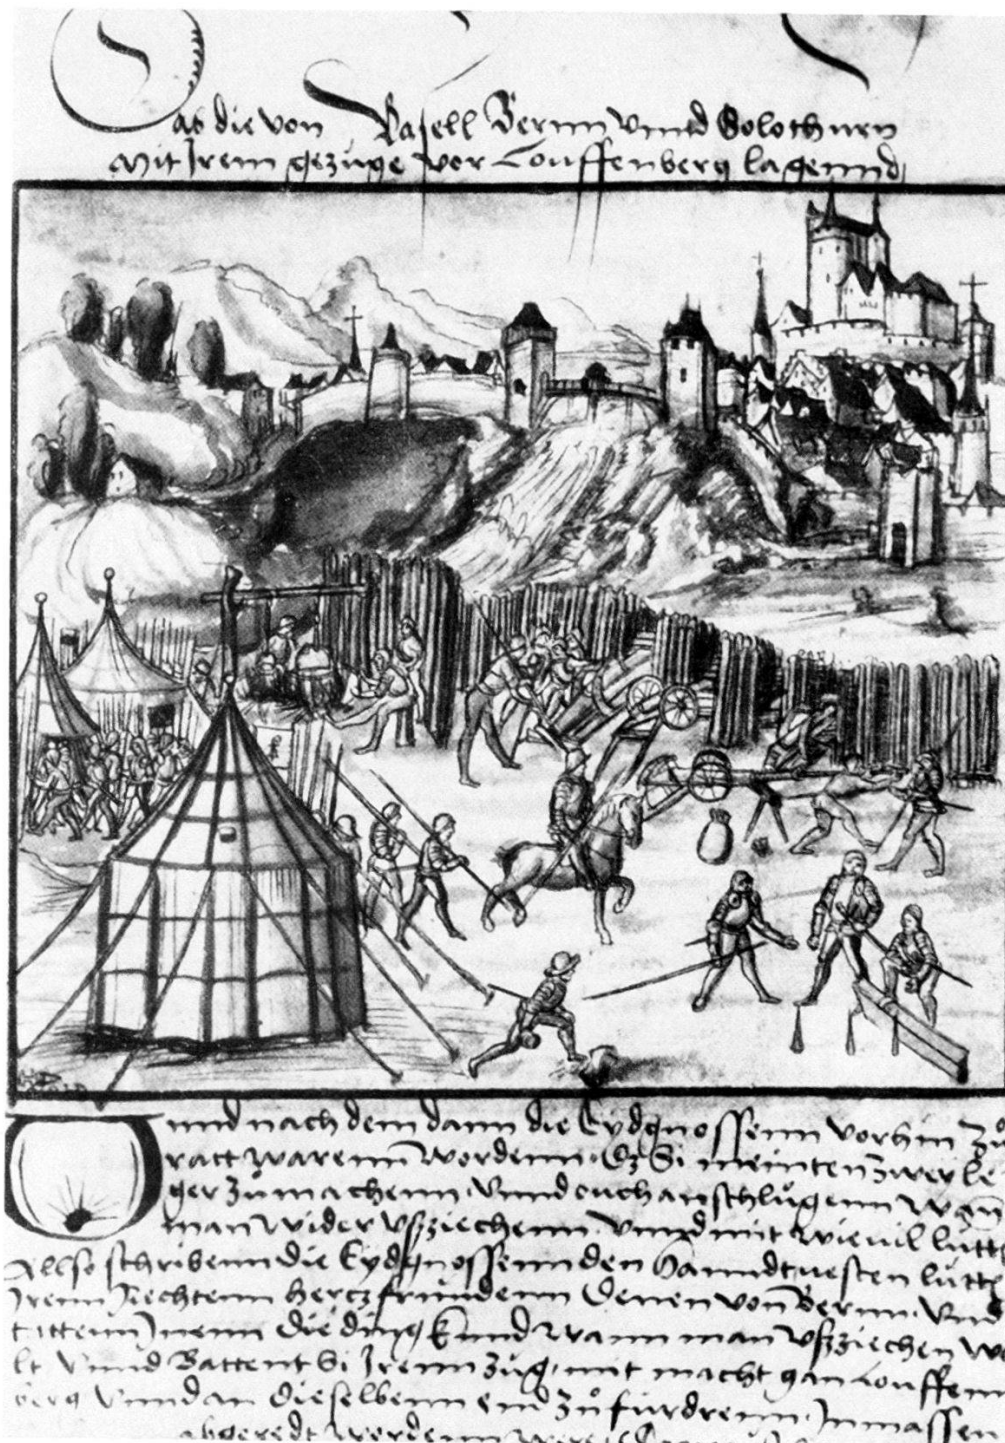 Das die von Basell Bernn vnnd Solothurn
mit Irem gezüge vor Louffenberg lagennd
Vnnd nach dem dann die Eydgnossenn vorhin zů
ratt warenn wordenn Si meinten zwer le
ger zů machenn vnnd ouch anschlůgenn wan
man wider vßziechenn vnnd mit wievil lütt
Allso schribenn die Eydgnossenn den Hanndtvesten lütt
Irenn Rechtenn herczfründenn Denen von Bernn vnd
Inenn die ding kund wann man vßziechen wo
lt vnnd Battent Si Irenn zùg mit macht gan Louffenn
berg vnnd an dieselbenn end zů fürdrenn Inmassen
abgeredt wordenn were